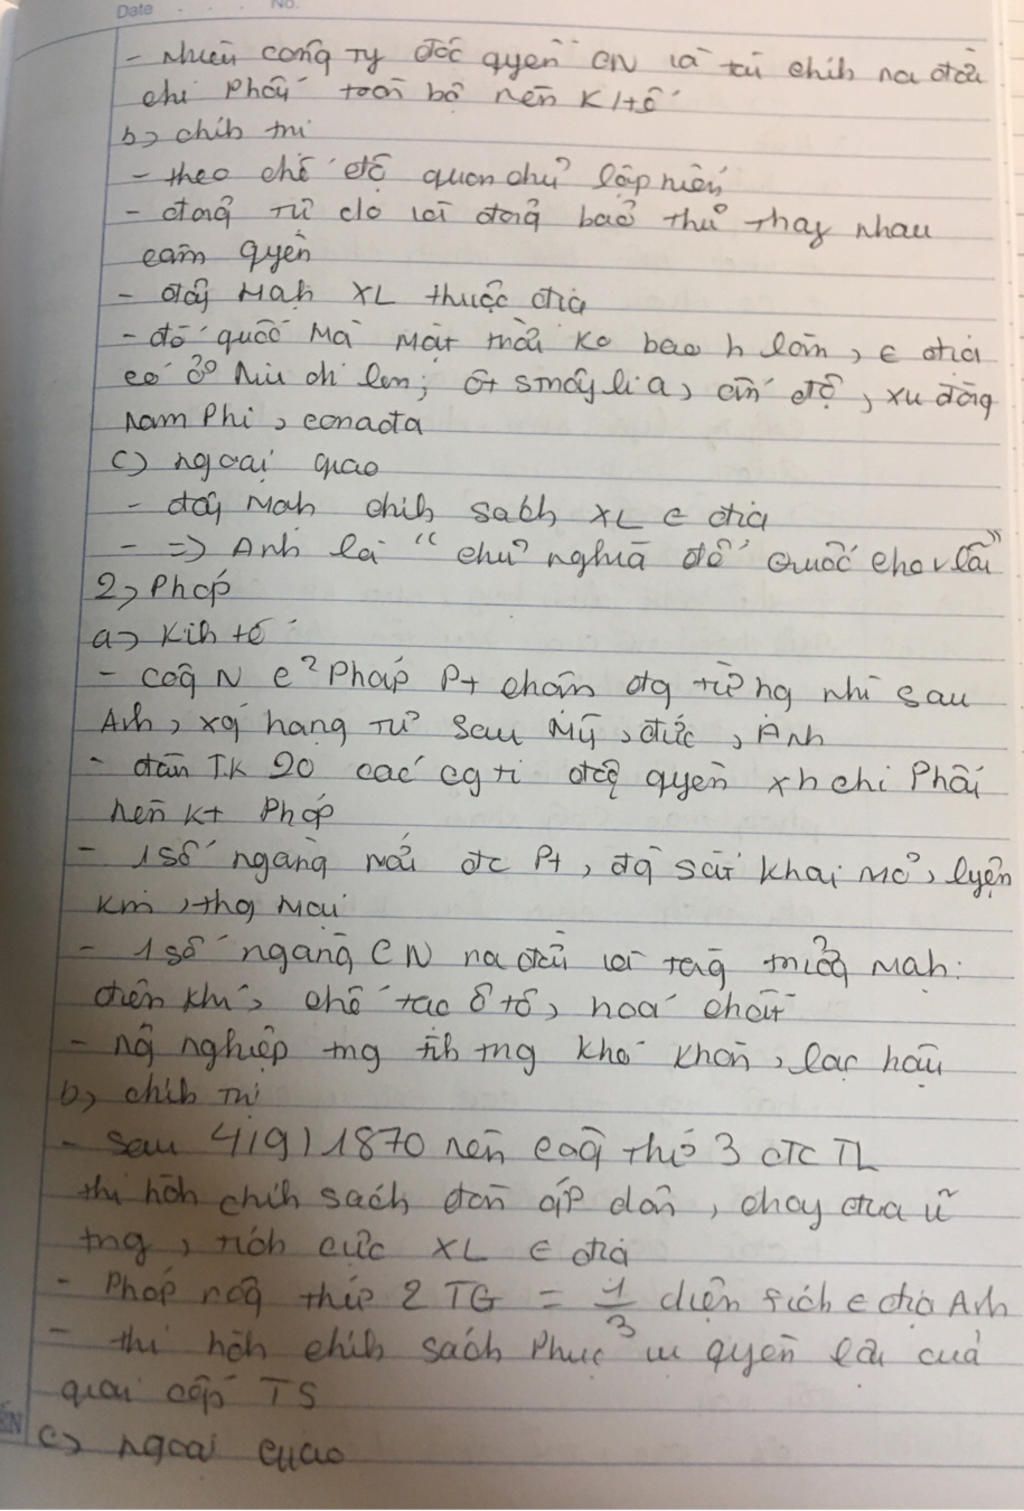 Date . . . No.
- nhiều công ty độc quyền CN và tài chíh ra đời
chi Phối toàn bộ nền K/tế
b, chíh trị
- theo chế độ quân chủ lập hiến
- đảng Tự do và đảng bảo thủ thay nhau
cầm quyền
- đẩy Mạh XL thuộc địa
- đế quốc Mà Mặt trời Ko bao h lặn, € địa
có ở Niu di len, Ốt smây li a, ấn độ, xu đăng
Nam Phi, canada
c) ngoại giao
- đẩy Mạh chíh sách XL € địa
- => Anh là " chủ nghĩa đế quốc
2, Pháp
a, Kih tế
- N Pháp Pt chậm nhì sau
Anh, hạng Tư sau Mỹ, đức, Anh
- đầu TK 20 các cg ti quyền chi Phối
nền kt Pháp
- 1 số ngàng mới đc Pt, sắt khai mỏ, lyện
kim, Mại
- 1 số ngàng CN ra đời và Mạh:
điện khí, chế tạo ô tô, hoá chất
- nghiệp tng tìh tng khó khăn, lạc hậu
b, chíh trị
- Sau 4/9/1870 nền thứ 3 đc TL
thi hàh chíh sách đàn áp dân, chạy đua
tng, tích cực XL € địa
- Pháp thứ 2 TG = 1/3 diện tích € địa Anh
- thi hàh chíh sách Phục quyền lợi của
giai cấp TS
c, ngoại giao